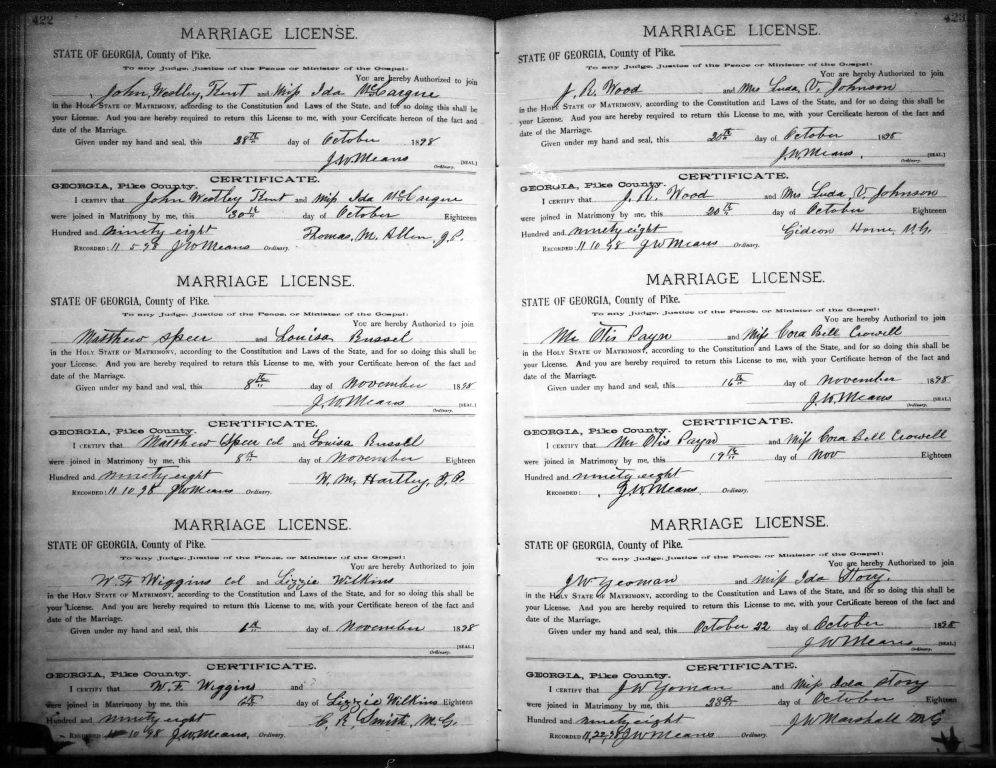 422
MARRIAGE LICENSE.
STATE OF GEORGIA, County of Pike.
To any Judge, Justice of the Peace or Minister of the Gospel:
You are hereby Authorized to join
John Westley Kent and Miss Ida McCargue
in the HOLY STATE OF MATRIMONY, according to the Constitution and Laws of the State, and for so doing this shall be
your License. And you are hereby required to return this License to me, with your Certificate hereon of the fact and
date of the Marriage.
Given under my hand and seal, this 28th day of October 1898
J.W. Means [SEAL]
Ordinary.
CERTIFICATE.
GEORGIA, Pike County.
I CERTIFY that John Westley Kent and Miss Ida McCargue
were joined in Matrimony by me, this 30th day of October Eighteen
Hundred and ninety eight Thomas. M. Allen, J.P.
RECORDED: 11 5 98 J W Means Ordinary.
MARRIAGE LICENSE.
STATE OF GEORGIA, County of Pike.
To any Judge, Justice of the Peace, or Minister of the Gospel:
You are hereby Authorized to join
Matthew Speer and Louisa Russel
in the HOLY STATE OF MATRIMONY, according to the Constitution and Laws of the State, and for so doing this shall be
your License. And you are hereby required to return this License to me, with your Certificate hereon of the fact and
date of the Marriage.
Given under my hand and seal, this 8th day of November 1898
J.W. Means [SEAL]
Ordinary.
CERTIFICATE.
GEORGIA, Pike County.
I CERTIFY that Matthew Speer col and Louisa Russel
were joined in Matrimony by me, this 8th day of November Eighteen
Hundred and ninety eight W. M. Hartley, J.P.
RECORDED: 11 10 98 J W Means Ordinary.
MARRIAGE LICENSE.
STATE OF GEORGIA, County of Pike.
To any Judge, Justice of the Peace, or Minister of the Gospel:
You are hereby Authorized to join
W. F. Wiggins col and Lizzie Wilkins
in the HOLY STATE OF MATRIMONY, according to the Constitution and Laws of the State, and for so doing this shall be
your License. And you are hereby required to return this License to me, with your Certificate hereon of the fact and
date of the Marriage.
Given under my hand and seal, this day of November 1898
[SEAL]
Ordinary.
CERTIFICATE.
GEORGIA, Pike County.
I CERTIFY that W. F. Wiggins and
were joined in Matrimony by me, this 6th day of Lizzie Wilkins Eighteen
Hundred and ninety eight C. R. Smith, M.G.
RECORDED 11 10 98 J.W. Means, Ordinary.
423
MARRIAGE LICENSE.
STATE OF GEORGIA, County of Pike.
To any Judge, Justice of the Peace or Minister of the Gospel:
You are hereby Authorized to join
J. R. Wood and Mrs Luda V. Johnson
in the HOLY STATE OF MATRIMONY, according to the Constitution and Laws of the State, and for so doing this shall be
your License. And you are hereby required to return this License to me, with your Certificate hereon of the fact and
date of the Marriage.
Given under my hand and seal, this 20th day of October 1898
J.W. Means. [SEAL]
Ordinary.
CERTIFICATE.
GEORGIA, Pike County.
I CERTIFY that J. R. Wood and Mrs Luda. V. Johnson
were joined in Matrimony by me, this 20th day of October Eighteen
Hundred and ninety eight Gideon Horne, M.G.
RECORDED: 11 10 98 J W Means Ordinary.
MARRIAGE LICENSE.
STATE OF GEORGIA, County of Pike.
To any Judge, Justice of the Peace, or Minister of the Gospel:
You are hereby Authorized to join
Mr Otis Payne and Miss Cora Bell Crowell
in the HOLY STATE OF MATRIMONY, according to the Constitution and Laws of the State, and for so doing this shall be
your License. And you are hereby required to return this License to me, with your Certificate hereon of the fact and
date of the Marriage.
Given under my hand and seal, this 16th day of November 1898
J.W. Means [SEAL]
Ordinary.
CERTIFICATE.
GEORGIA, Pike County.
I CERTIFY that Mr Otis Payne and Miss Cora Bell Crowell
were joined in Matrimony by me, this 19th day of Nov Eighteen
Hundred and ninety eight
RECORDED: J.W. Means. Ordinary.
MARRIAGE LICENSE.
STATE OF GEORGIA, County of Pike.
To any Judge, Justice of the Peace, or Minister of the Gospel:
You are hereby Authorized to join
J W Yeoman and Miss Ida Story.
in the HOLY STATE OF MATRIMONY, according to the Constitution and Laws of the State, and for so doing this shall be
your License. And you are hereby required to return this License to me, with your Certificate hereon of the fact and
date of the Marriage.
Given under my hand and seal, this October 22 day of October 1898
J W Means [SEAL]
Ordinary.
CERTIFICATE.
GEORGIA, Pike County.
I CERTIFY that J W Yoman and Miss Ida Story
were joined in Matrimony by me, this 23d day of October Eighteen
Hundred and ninety eight J W Marshall M G
RECORDED 11, 22, 98 J W Means Ordinary.